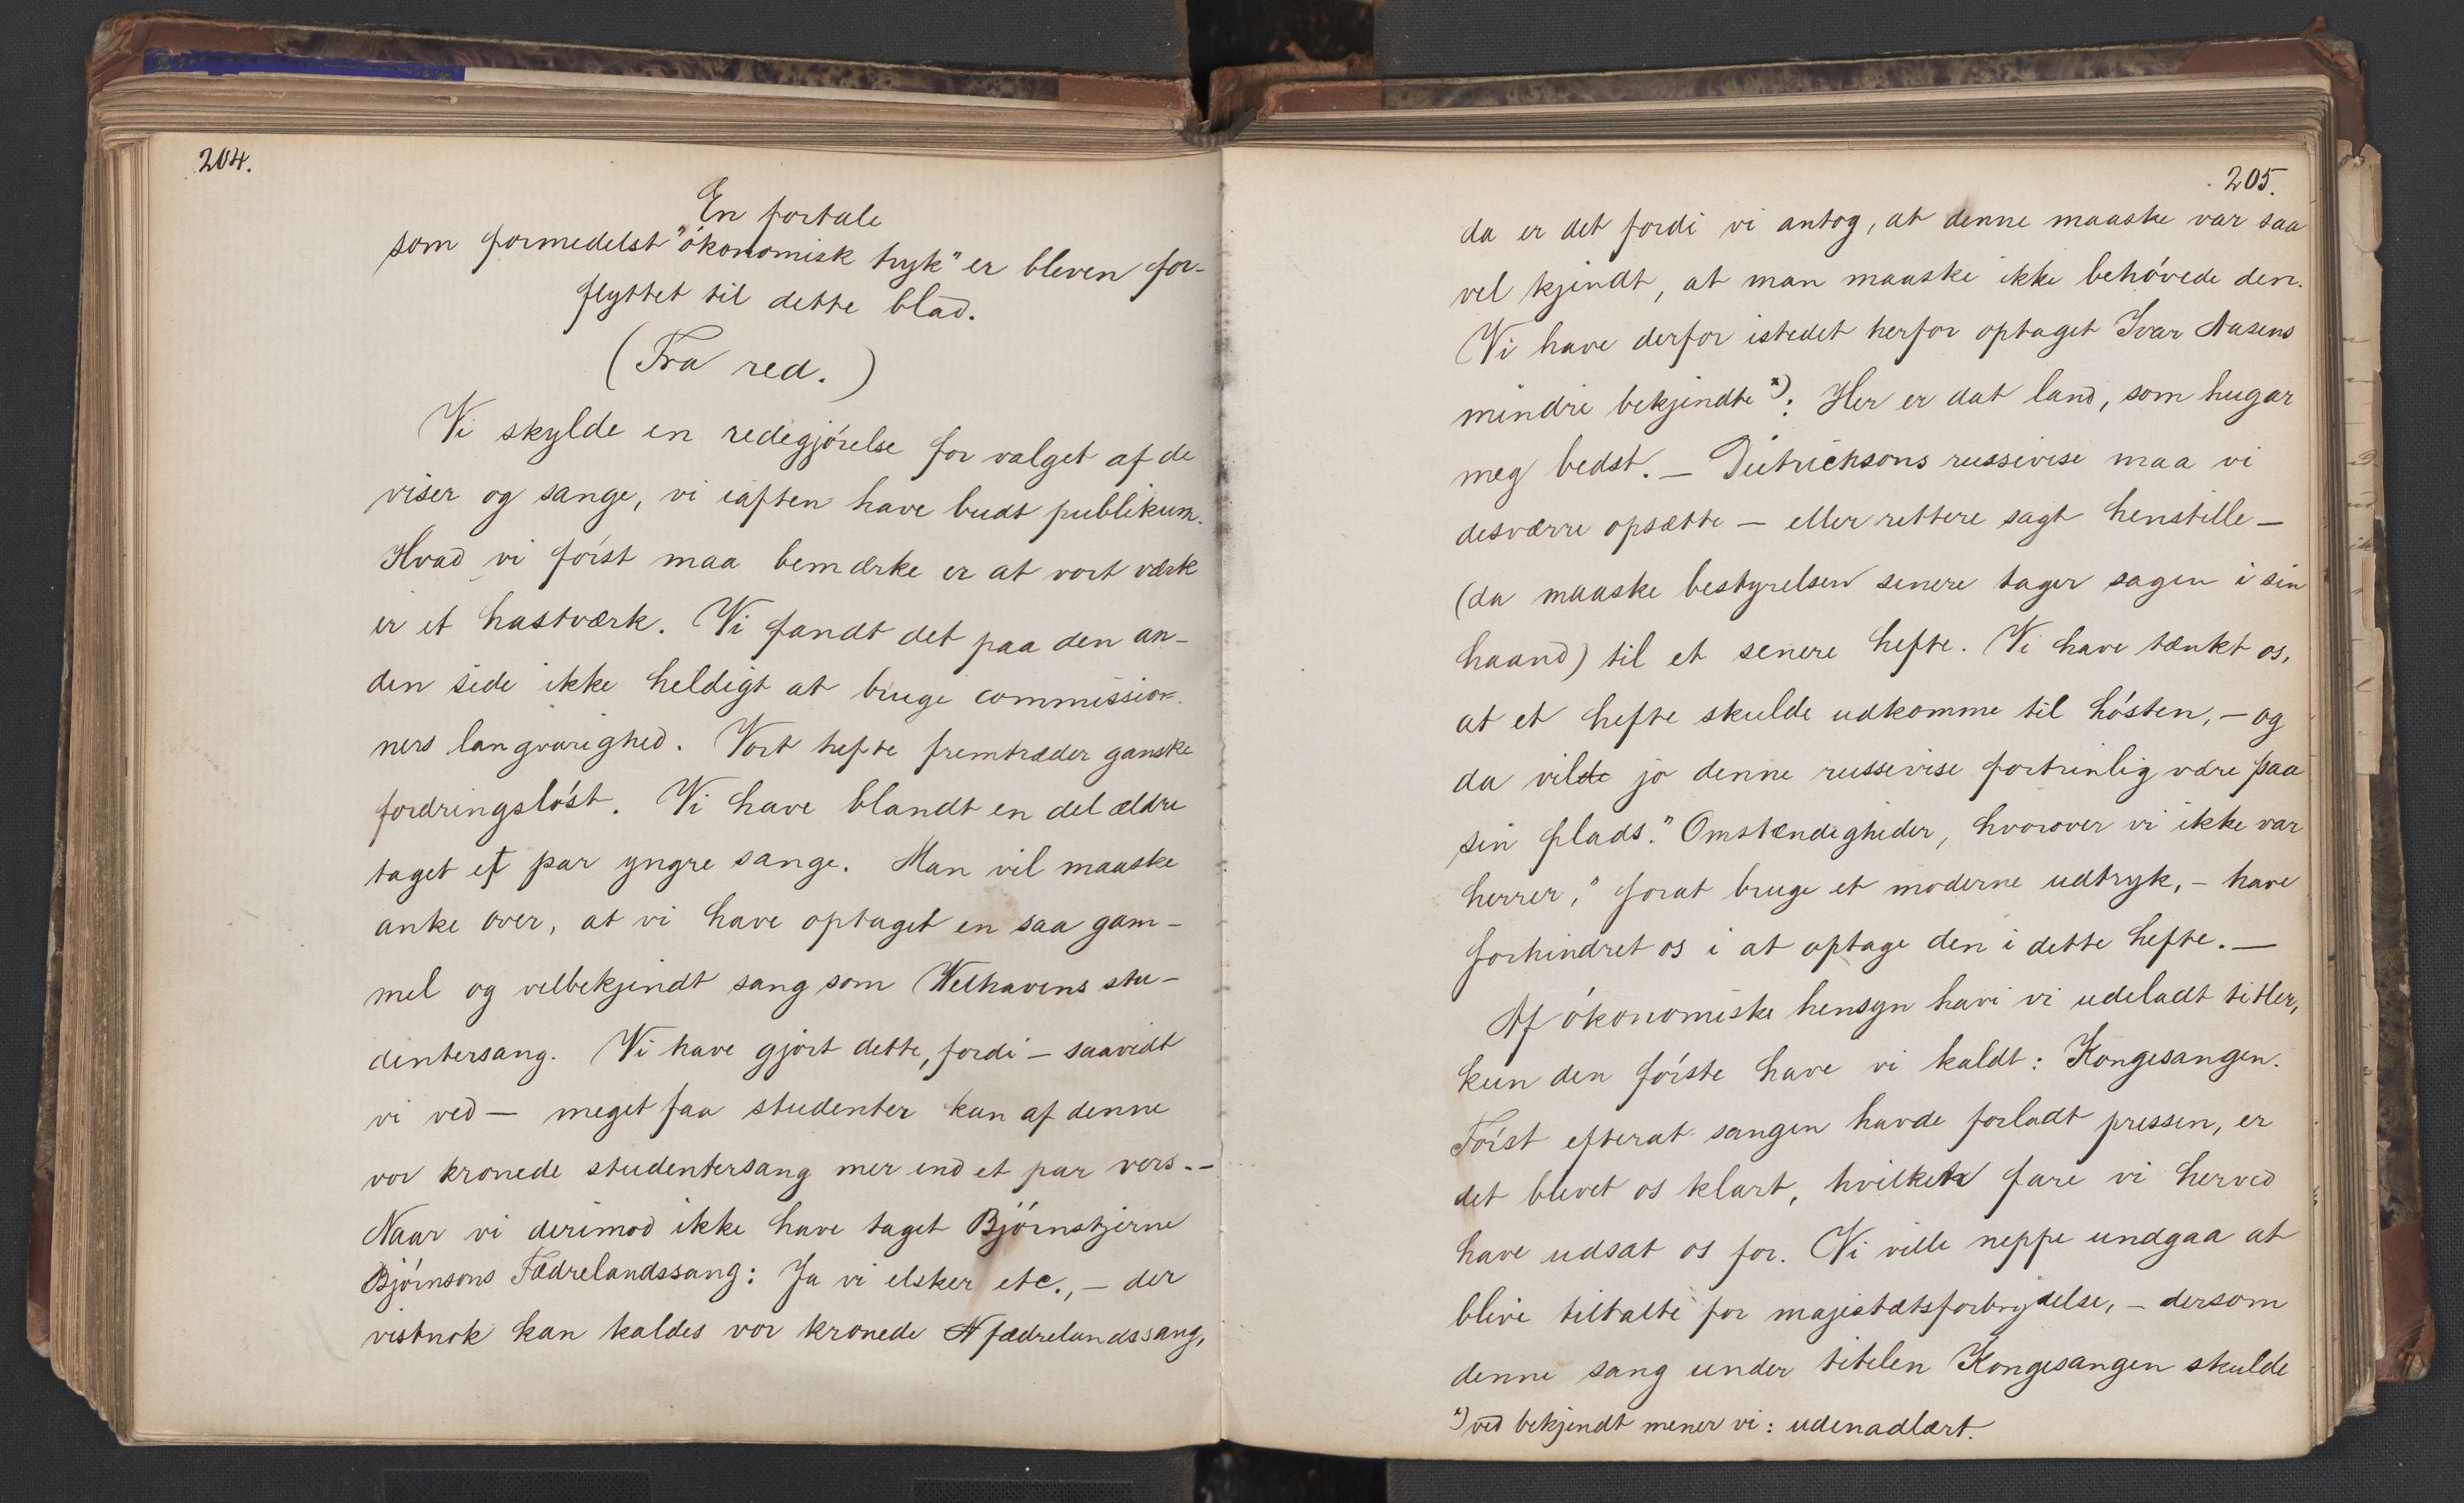 204.
En fortale
som formedelst "ökonomisk tryk" er bleven for-
flyttet til dette blad.
(Fra red.)
Vi skylde en redegjörelse for valget af de
viser og sange, vi iaften have budt publikum.
Hvad vi först maa bemærke er at vort værk
er et hastværk. Vi fandt det paa den an-
den side ikke heldigt at bruge commission-
ners langvarighed. Vort hefte fremtræder ganske
fordringslöst. Vi have blandt en del ældre
taget et par yngre sange. Man vil maaske
anke over, at vi have optaget en saa gam-
mel og velbekjendt sang som Welhavens stu-
dentersang. Vi have gjort dette, fordi - saavidt
vi ved - meget faa studenter kan af denne
vor kronede studentersang mer end et par vers. -
Naar vi derimod ikke have taget Björnstjerne
Björnsons Fædrelandssang: Ja vi elsker etc., - der
vistnok kan kaldes vor kronede fædrelandssang,
205.
da er det fordi vi antog, at denne maaske var saa
vel kjendt, at man maaske ikke behövede den.
Vi have derfor istedet herfor optaget Ivar Aasens
mindre bekjendte *): Her er dat land, som hugar
meg bedst. - Dietrichsons russevise maa vi
desværre opsætte - eller rettere sagt henstille -
(da maaske bestyrelsen senere tager sagen i sin
haand) til et senere hefte. Vi have tænkt os,
at et hefte skulde udkomme til hösten, - og
da vil jo denne russevise fortrinlig være paa
sin plads. "Omstændigheder, hvorover vi ikke var
herrer," forat bruge et moderne udtryk, - have
forhindret os i at optage den i dette hefte. -
Af ökonomiske hensyn have vi udeladt titler,
kun den förste have vi kaldt: Kongesangen.
Först efterat sangen havde forladt pressen, er
det blevet os klart, hvilken fare vi herved
have udsat os for. Vi ville neppe undgaa at
blive tiltalte for majestætsforbrydelse, - dersom
denne sang under titelen Kongesangen skulde
*) ved bekjendt mener vi: udenadlært.